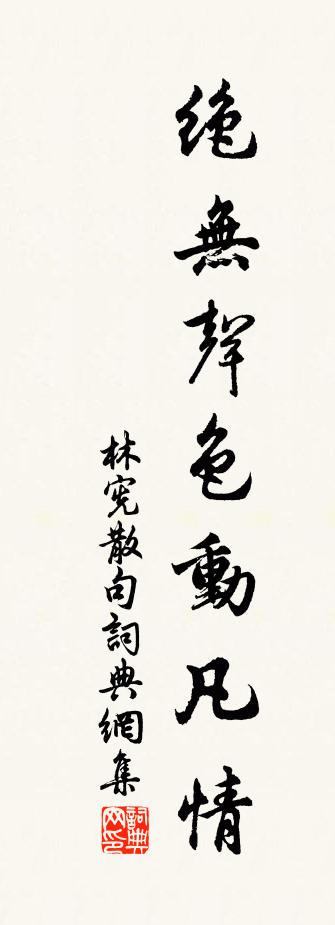 絶無聲色動凡情
林憲散句詞典網集
詞典網印